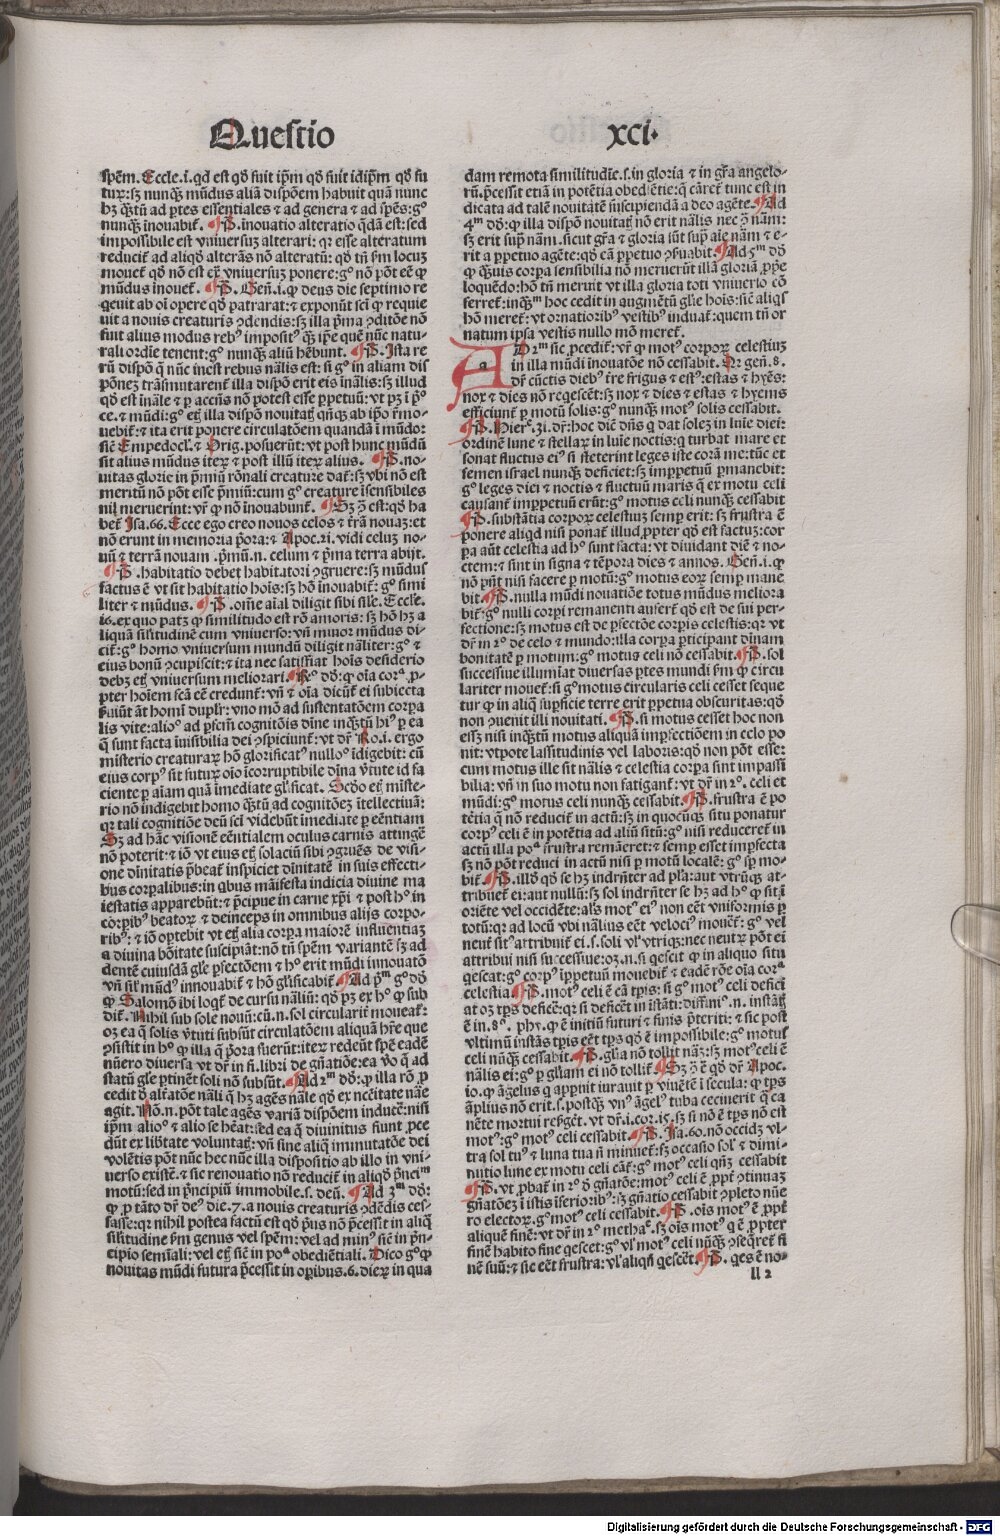 Questio
xci.
spēm. Eccle.i. qd est qd fuit ip̄m qd fuit idip̄m qd fu
tur: sz nunq̄ mūdus aliā dispōem habuit quā nunc
hz q̄tū ad ptes essentiales & ad genera & ad spēs: g°
nunq̄ inouabit̄. ¶ P. inouatio alteratio q̄dā est: sed
impossibile est vniuersuz alterari: qr esse alteratum
reducit̄ ad aliqd alterās nō alteratū: qd tn̄ fm locuz
mouet̄ qd nō est ex̄ vniuersuz ponere: g° nō pōt eē q
mūdus inouet̄. ¶ P. Gen̄.i. q deus die septimo re
qeuit ab oī opere qd patrarat: & exponūt sc̄i q requie
uit a nouis creaturis ↄdendis: sz illa p̄ma ↄditōe nō
fuit alius modus reb° imposit° q̄ ip̄e quē nūc natu
rali ordīe tenent: g° nunq̄ aliū hēbunt. ¶ P. Ista re
rū dispō q̄ nūc inest rebus nālis est: si g° in aliam dis
pōnez trāsmutarent̄ illa dispō erit eis īnālis: sz illud
qd est īnāle & p accn̄s nō potest esse ppetuū: vt pz ī p°
ce. & mūdi: g° etz illa dispō nouitat̄ qn̄q ab ip̄o r̄mo-
uebit̄: & ita erit ponere circulatōem quandā ī mūdo:
sic̄ Empedocl. & Orig. posuerūt: vt post hunc mūdū
sit alius mūdus iter & post illū iter alius. ¶ P. no-
uitas glorie in p̄miū rōnali creature dat̄: sz vbi nō est
meritū nō pōt esse p̄miū: cum g° creature īsensibiles
nil meruerint: vr q nō inouabunt̄. ¶ Sz ↄ est: qd ha
bet̄ Isa.66. Ecce ego creo nouos celos & t̄rā nouaz: et
nō erunt in memoria p̄ora: & Apoc.21. vidi celuz no-
uū & terrā nouam. p̄mū.n. celum & p̄ma terra abijt.
¶ P. habitatio debet habitatori ↄgruere: sz mūdus
factus ē vt sit habitatio hoīs: sz hō inouabit̄: g° simi
liter & mūdus. ¶ P. om̄e aīal diligit sibi sile. Eccle.
16. ex quo patz q similitudo est rō amoris: sz hō hz a
liquā silitudinē cum vniuerso: vn̄ minor mūdus di-
cit̄: g° homo vniuersum mundū diligit nāliter: g° &
eius bonū ↄcupiscit: & ita nec satisfiat hoīs desiderio
debz etz vniuersum meliorari. R° dd: q oīa cor̄a p-
pter hoīem sc̄ā cē credunt̄: vn̄ & oīa dicūt̄ ei subiecta
suiūt āt homī duplr: vno mō ad sustentatōem corpa
lis vite: alio° ad psc̄m cognitōis dīne inq̄tū hī° p ea
q̄ sunt facta īuisibilia dei ↄspiciunt̄: vt dr̄ Ro.i. ergo
misterio creaturar hō glorificat° nullo° īdigebit: cū
eius corp° sit futur oīo īcorruptibile dīna v̄tute id fa
ciente p aīam quā īmediate gl̄ificat. Scdo etz miste-
rio nō indigebit homo q̄tū ad cognitōez ītellectiuā:
qr tali cognitiōe deū sc̄i videbūt imediate p eēntiam
Sz ad hāc visionē eēntialem oculus carnis attingē
nō poterit: & iō vt eius etz solaciū sibi ↄgruēs de visi-
one dīnitatis p̄beat̄ inspiciet dīnitatē in suis effecti-
bus corpalibus: in qbus māifesta indicia diuine ma
iestatis apparebūt: & p̄cipue in carne xp̄i & post h° in
corpib° beator & deinceps in omnibus alijs corpo-
rib°: & iō optebit vt etz alia corpa maiorē influentiaz
a diuina bōitate suscipiāt: nō tn̄ spēm variantē sz ad
dentē cuiusdā gl̄e pfectōem & h° erit mūdi innouatō
vn̄ sil mūd° innouabit̄ & hō gl̄ificabit̄. ¶ Ad p̄m g° dd
q Salomō ibi loqt̄ de cursu nāliū: qd pz ex h° q sub
dit̄. Nihil sub sole nouū: cū.n. sol circularit̄ moueat̄:
oz ea q̄ solis v̄tuti subsūt circulatōem aliquā hr̄e que
ↄsistit in h° q illa q̄ p̄ora fuerūt: iter redeūt spē eadē
nūero diuersa vt dr̄ in fi. libri de gn̄atiōe: ea v̄o q̄ ad
statū gl̄e ptinēt soli nō subsūt. ¶ Ad 2m dd: q illa rō p
cedit d̄ alt̄atōe nāli q̄ hz agēs nāle qd ex nccītate nāe
agit. Nō.n. pōt tale agēs variā dispōem inducē: nisi
ip̄m alio° & alio se hēat: sed ea q̄ diuinitus fiunt pce
dūt ex lib̄tate voluntat̄: vn̄ sine aliq̄ īmutatōe dei
volētis pōt nūc hec nūc illa dispositio ab illo in vni-
uerso existē. & sic renouatio nō reducit̄ in aliqd p̄nci m
motū: sed in p̄ncipiū immobile.s. deū. ¶ Ad 3m dd:
q p tāto dr̄ de° die.7. a nouis creaturis ↄdēdis ces-
sasse: qr nihil postea factū est qd p̄us nō p̄cessit in aliq̄
silitudine fm genus vel spēm: vel ad min° sic̄ in p̄n-
cipio semīali: vel etz sic̄ in po a obediētiali. Dico g° q
nouitas mūdi futura p̄cessit in opibus.6. dier in qua
dam remota similitudīe.s. in gloria & in gr̄a angelo-
rū. p̄cessit etiā in potētia obediētie: q̄ cārēt̄ tunc est in
dicata ad talē nouitatē suscipiendā a deo agēte. ¶ Ad
4m dd: q illa dispō nouitat̄ nō erit nālis nec ↄ nām:
sz erit sup̄ nām. sicut gr̄a & gloria sūt sup̄ aīe nām & e-
rit a ppetuo agēte: qd eā ppetuo ↄs̄uabit. ¶ Ad 5m dd
q q̄uis corpa sensibilia nō meruerūt illā gloriā ppe
loquēdo: hō tn̄ meruit vt illa gloria toti vniuerso cō
ferret̄: inq̄ m hoc cedit in augmētū gl̄e hoīs: sic̄ aliqs
hō meret̄: vt ornatiorib° vestib° induat̄: quem tn̄ or
natum ipsa vestis nullo mō meret̄.
AD 2m sic pcedit̄: vr̄ q mot° corpor celestiuz
in illa mūdi inouatōe nō cessabit. Qr gen̄.8.
dr̄ cūctis dieb° tr̄e frigus & est°: estas & hyēs:
nox & dies nō reqescēt: sz nox & dies & estas & hyems
efficiunt̄ p motū solis: g° nunq̄ mot° solis cessabit.
¶ P. Hier e.31. dr̄: hoc dic̄ dn̄s q dat solez in luīe diei:
ordinē lune & stellar in luīe noctis: q turbat mare et
sonat fluctus ei° si steterint leges iste corā me: tūc et
semen israel nunq̄ deficiet: sz imppetuū pmanebit:
g° leges diei & noctis & fluctuū maris q̄ ex motu celi
causant̄ imppetuū erūt: g° motus celi nunq̄ cessabit
¶ P. substātia corpor celestiuz semp erit: sz frustra ē
ponere aliqd nisi ponat̄ illud ppter qd est factuz: cor
pa aūt celestia ad h° sunt facta: vt diuidant diē & no-
ctem: & sint in signa & tēpora dies & annos. Gen̄.i. q
nō p̄nt nisi facere p motū: g° motus eor semp mane
bit. ¶ P. nulla mūdi nouatiōe totus mūdus meliora
bit̄: g° nulli corpi remanenti aufert̄ qd est de sui per-
fectione: sz motus est de pfectōe corpis celestis: qr vt
dr̄ in 2° de celo & mundo: illa corpa pticipant dīnam
bonitatē p motum: g° motus celi nō cessabit. ¶ P. sol
successiue illumīat diuersas ptes mundi fm q circu
lariter mouet̄: si g° motus circularis celi cesset seque
tur q in aliq̄ supficie terre erit ppetua obscuritas: qd
non ↄuenit illi nouitati. ¶ P. si motus cesset hoc non
essz nisi inq̄tū motus aliquā impfectiōem in celo po
nit: vtpote lassitudinis vel laboris: qd non pōt esse:
cum motus ille sit nālis & celestia corpa sint impassi
bilia: vn̄ in suo motu non fatigant̄: vt dr̄ in 2°. celi et
mūdi: g° motus celi nunq̄ cessabit. ¶ P. frustra ē po
tētia q̄ nō reducit̄ in actū: sz in quocūq situ ponatur
corp° celi ē in potētia ad aliū sitū: g° nisi reduceret̄ in
actū illa po a frustra remāeret: & semp esset impfecta
sz nō pōt reduci in actū nisi p motū localē: g° sp mo-
bit̄. ¶ P. illd qd se hz indrn̄ter ad pla: aut vtrūq at-
tribuet̄ ei: aut nullū: sz sol indrn̄ter se hz ad h° q sit ī
oriēte vel occidēte: als mot° ei° non eēt vniformis p
totū: qr ad locū vbi nālius eēt veloci° mouet̄: g° vel
neut̄ sit° attribuit̄ ei.s. soli vl vtriq: nec neutr pōt ei
attribui nisi successiue: oz.n. si qescit q in aliquo situ
qescat: g° corp° ippetuū mouebit̄ & eadē rōe oīa cor a
celestia. ¶ P. mot° celi ē cā tpis: si g° mot° celi defici
at oz tps deficē: qr si deficēt in īstāti: diffīni°.n. instātz
ē in.8°. phy. q ē initiū futuri & finis p̄teriti: & sic post
vltimū instās tpis eēt tps qd ē impossibile: g° motus
celi nūq̄ cessabit. ¶ P. gl̄ia nō tollit nāz: sz mot° celi ē
nālis ei: g° p gl̄iam ei nō tollit̄. ¶ Sz ↄ ē qd dr̄ Apoc.
10. q āgelus q apparuit iurauit p viuētē ī secula: q tps
āplius nō erit.s. postq̄ vn° āgel° tuba cecinerit q̄ ca
nēte mortui resgēt̄. vt dr̄.i.cor.15. sz si nō ē tps nō est
mot°: g° mot° celi cessabit. ¶ P. Isa.60. nō occidz vl-
tra sol tu° & luna tua n̄ minuet̄: sz occasio sol & dimi-
nutio lune ex motu celi cāt̄: g° mot° celi qn̄z cessabit
¶ P. vt pbat̄ in 2° d̄ gn̄atōe: mot° celi ē ppt̄ ↄtinuaz
gn̄atōez ī istis īferiorib°: sz gn̄atio cessabit ↄpleto nūe
ro elector. g° mot° celi cessabit. ¶ P. oīs mot° ē ppt̄
aliquē finē: vt dr̄ in 2° metha e. sz oīs mot° q̄ ē ppter
finē habito fine qescet: g° vl mot° celi nūq̄ ↄseqret̄ fi
nē suū: & sic eēt frustra: vl aliqn̄ qescēt. ¶ P. qes ē no-
ll 2
Digitalisierung gefördert durch die Deutsche Forschungsgemeinschaft - DFG